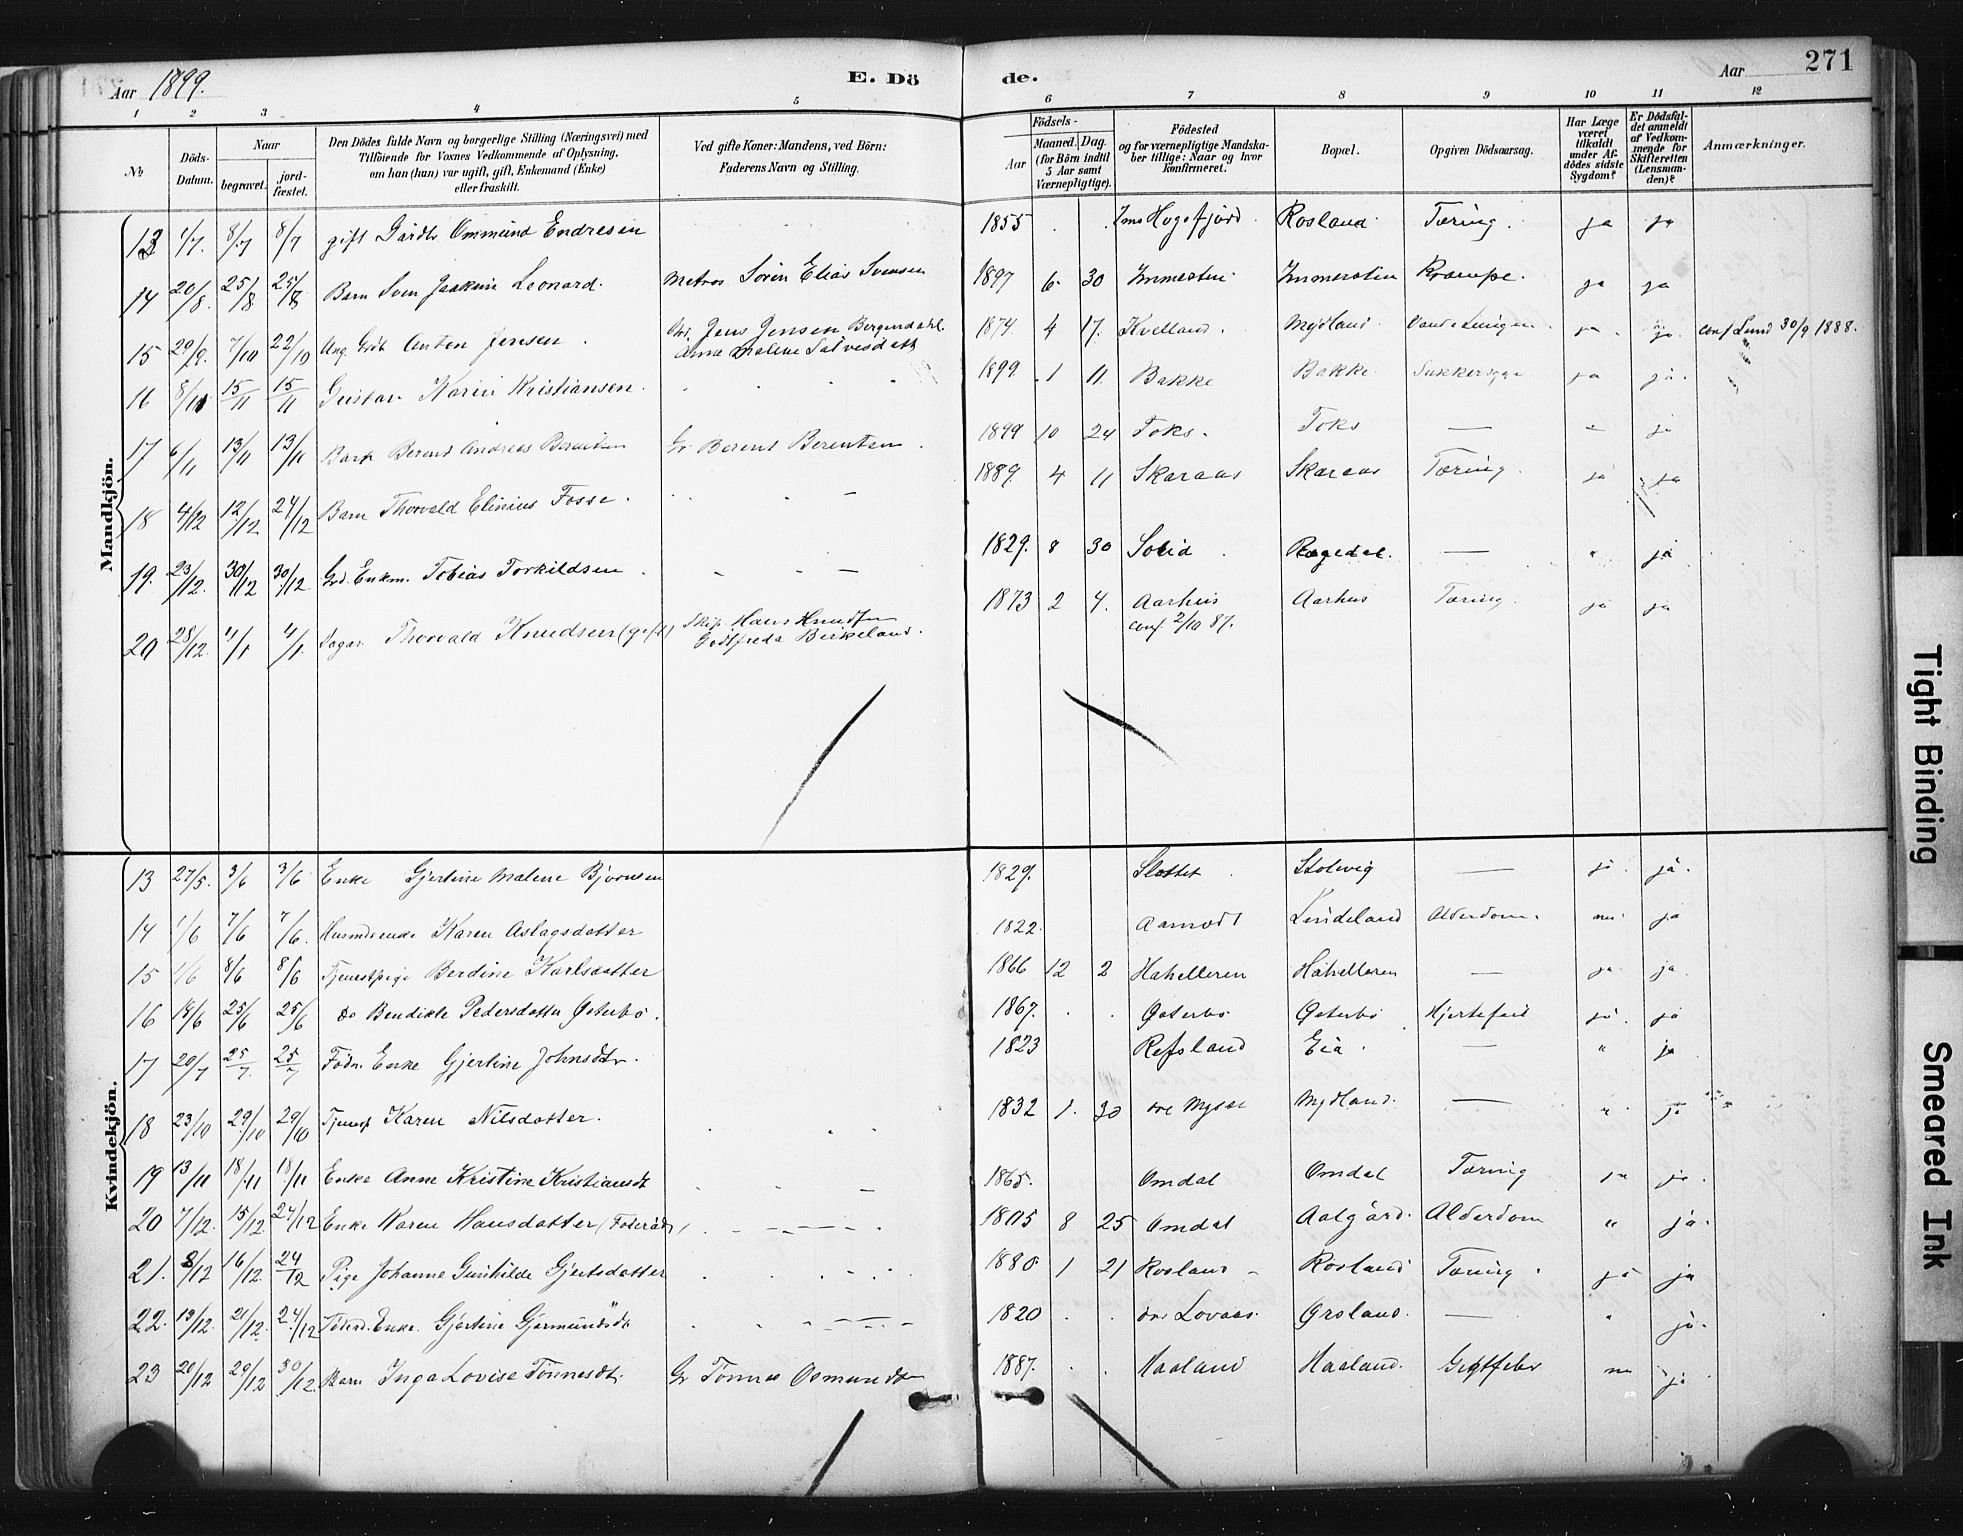 Aar 1899.
E. Dö
de.
Aar
271
1 2 3 4 5
6 7 8 9 10 11 12
No
Döds-Datum.
Naar
begravet.
jord-fæstet.
Den Dödes fulde Navn og borgerlige Stilling (Næringsvei) med
Tilföiende for Voxnes Vedkommende af Oplysning,
om han (hun) var ugift, gift, Enkemand (Enke)
eller fraskilt.
Ved gifte Koner: Mandens, ved Börn:
Faderens Navn og Stilling.
Födsels-
Aar
Maaned. Dag.
(for Börn indtil
5 Aar samt
Værnepligtige).
Födested
og for værnepligtige Mandska-
ber tillige: Naar og hvor
konfirmeret.
Bopæl.
Opgiven Dödsaarsag.
Har Læge
været
tilkaldt
under Af-
dödes sidste
Sygdom?
Er Dödsfal-
det anmeldt
af Vedkom-
mende for
Skifteretten
(Lensman-
den)?
Anmærkninger.
Mandkjön.
13 1/7. 8/7 8/7 gift Gårdbr Ommund Endresen 1855 . . Hogsfjord. Rosland Tæring. ja ja
14 20/8. 25/8 25/8 Barn Sven Joakim Leonard. Matros Sören Elias Svensen 1897 6. 30 Immerstein Immerstein Krampe. ja ja
15 29/9. 7/10 22/10 Ung. Anton Jensen. Jens Jensen Bergendahl. Anna Malene 1874 4 17. Kvelland. Mydland ja. conf Lund 30/9 1888.
16 15/11 15/11 Gustav Karin Kristiansen. 1899. 1 11 Bakke Bakke ja ja.
17 6/11 13/11 13/11 Barn Berend Andreas Berentsen Gr Berent Berentsen. 1899 10 24 Foks. Foks — ja
18 4/12 12/12 24/12 Barn Thorvald Elinius Fosse. 1889. 4 11 Skaraas Skaraas Tæring. ja ja
19. 23/12. 30/12 30/12 Enkm. Tobias Torkildsen 1829. 8 30 Solid Rægedal. — " ja
20 28/12. 4/1 4/1. Thorvald Knudsen (gift) Skip. Hans Knudsen Birkeland. 1873 2 4. Aarhus conf 2/10 87. Aarhus Tæring. ja ja
Kvindekjön.
13 27/5. 3/6 3/6 Enke Gjertine Malene Bjornsen 1829. Slottet Stolevig — ja. ja.
14 1/6 7/6 7/6. Husmdsenke Karen Aslagsdatter 1822. Aamodt Lindeland Alderdom. nei ja
15 1/6 8/6 8/6 Tjenestpige Berdine Karlsdatter 1866 12 2 Håhelleren Håhelleren — ja ja.
16 18/6 25/6 25/6 do Bendikte Pedersdatter Østerbö. 1867. . . Østerbö Østerbö Hjertefeil ja. ja
17 20/7 25/7. 25/7 Födr. Enke Gjertine Johnsdtr. 1823 Refsland Eia. — " ja
18 23/10 29/10 29/10 Tjenesp Karen Nilsdatter. 1832 1. 30 Mydland. — " ja
19 13/11 18/11 18/11 Enke Anne Kristine Kristiansdt 1865. Omdal Omdal Tæring ja ja.
20 7/12. 15/12 24/12 Enke Karen Hansdatter (Föderåd) 1805 8 25 Omdal Aalgård. Alderdom " ja.
21. 8/12 16/12. 24/12 Pige Johanne Gunhilde Gjertsdatter 1880. 1 21 Rosland Rosland Tæring. ja ja
22. 13/12. 21/12. 24/12 Föderd. Enke. Gjertine Gjermundsdr 1820 . . Lovaas. Grøland. — " ja.
23 20/12 29/12 30/12. Barn Inga Lovise Tönnesdt. Gr Tönnes Osmundsen 1887. . . Haaland Haaland. Gigtfeber nei ja
Tight Binding
Smeared Ink